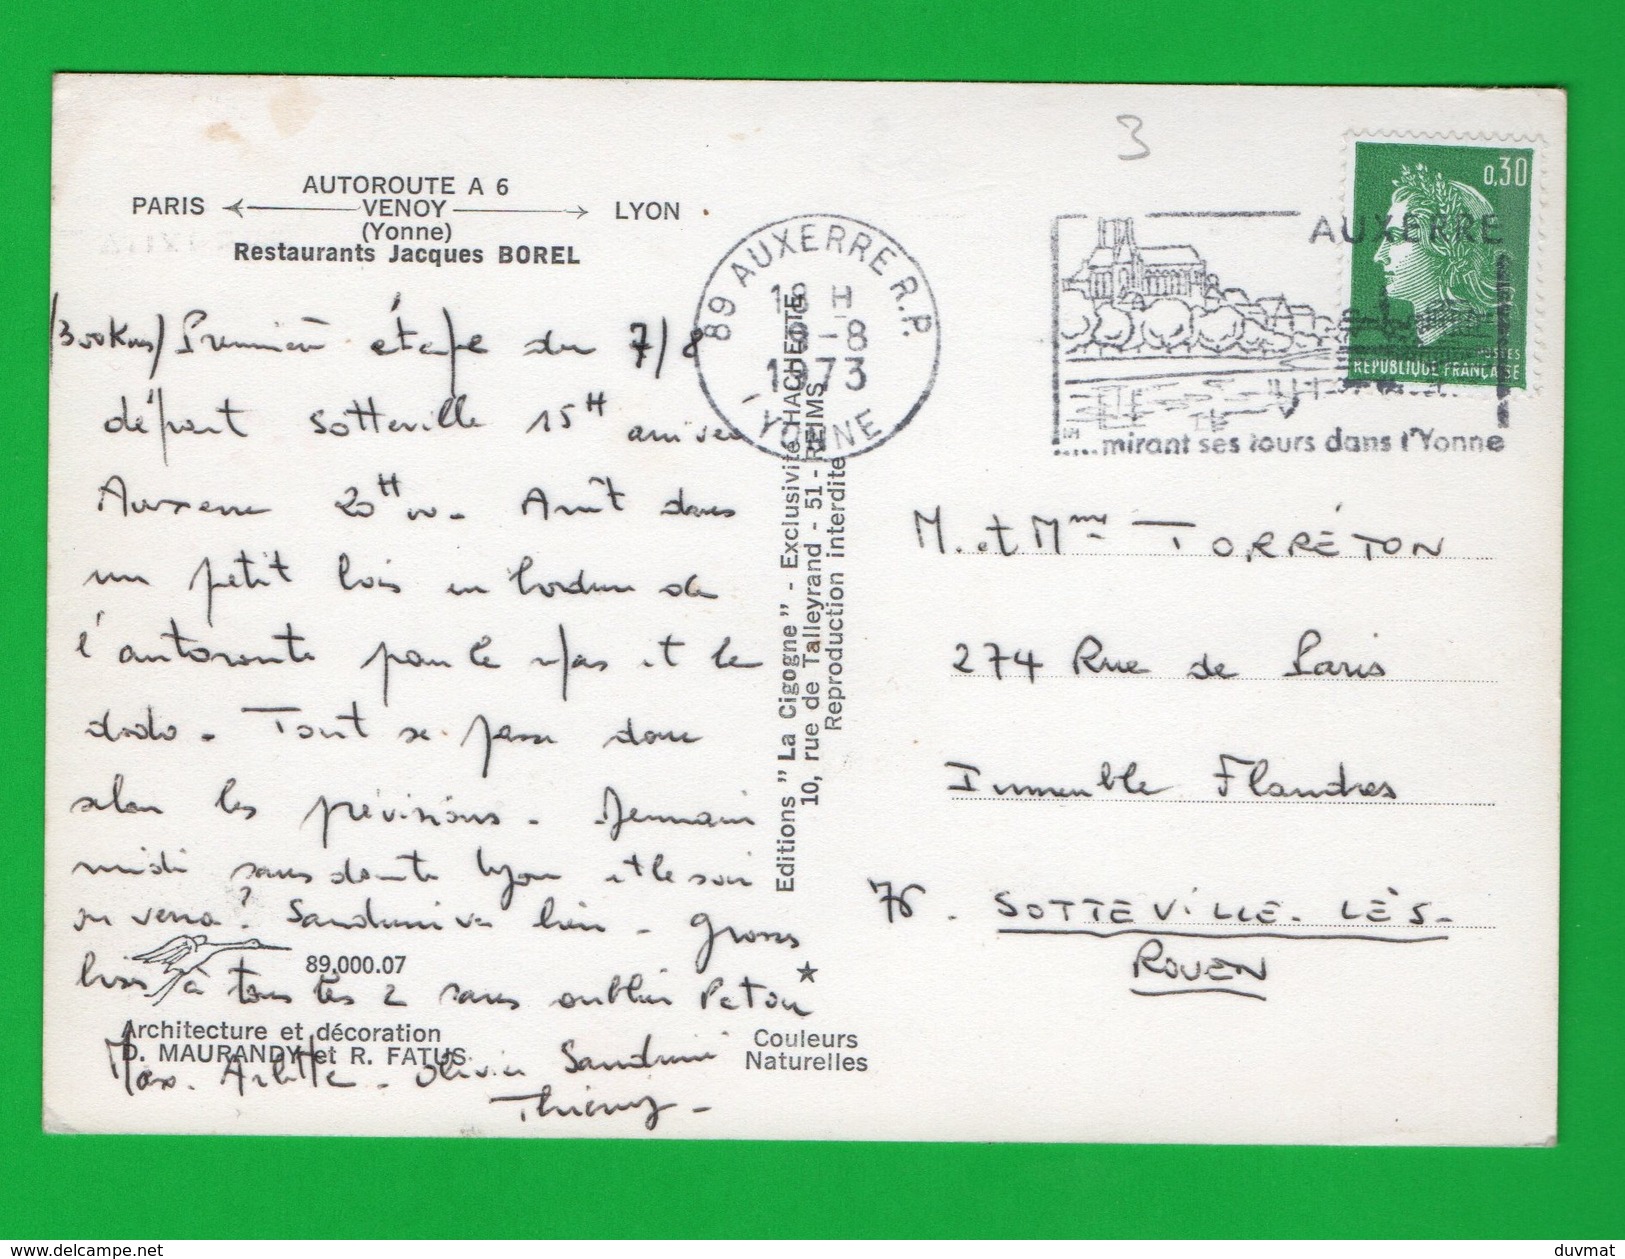 AUTOROUTE A 6
PARIS VENOY LYON
(Yonne)
Restaurants Jacques BOREL
(300 Kms) Première étape du 7/8
départ Sotteville 15H arrivée
Auxerre 20H00. Arrêt dans
un petit bois en bordure de
l'autoroute pour le repas et le
dodo. Tout se passe donc
selon les prévisions. Demain
midi sans doute Lyon et le soir
on verra? Sandrine va bien. Grosses
bises à tous les 2 sans oublier Patou
Max. Arlette. Olivier Sandrine
Thierry.
89.000.07
Architecture et décoration
D. MAURANDY et R. FATUS
Couleurs
Naturelles
Editions "La Cigogne" - Exclusivité HACHETTE
10, rue de Talleyrand - 51 - REIMS
Reproduction interdite
3
89 AUXERRE R.P.
18 H
-8
1973
YONNE
AUXERRE
.....mirant ses tours dans l'Yonne
0,30
POSTES
REPUBLIQUE FRANÇAISE
M. et Mme TORRÉTON
274 Rue de Paris
Immeuble Flandres
76. SOTTEVILLE-LÈS-
ROUEN
www.delcampe.net
duvmat